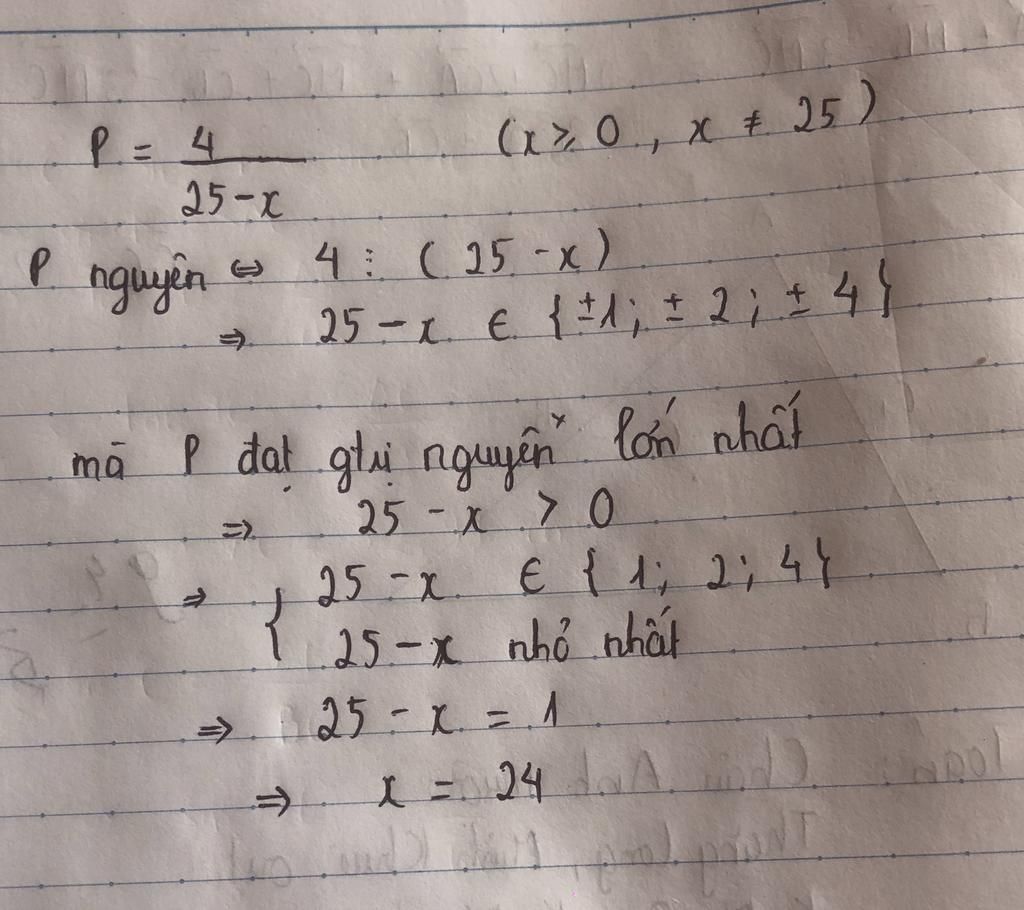 P = 4/(25-x) (x ≥ 0, x ≠ 25)
P nguyên ⇔ 4 ⋮ (25 - x)
⇒ 25 - x ∈ {±1; ± 2; ± 4}
mà P đạt gtrị nguyên lớn nhất
⇒ 25 - x > 0
⇒ { 25 - x ∈ { 1; 2; 4}
25 - x nhỏ nhất
⇒ 25 - x = 1
⇒ x = 24